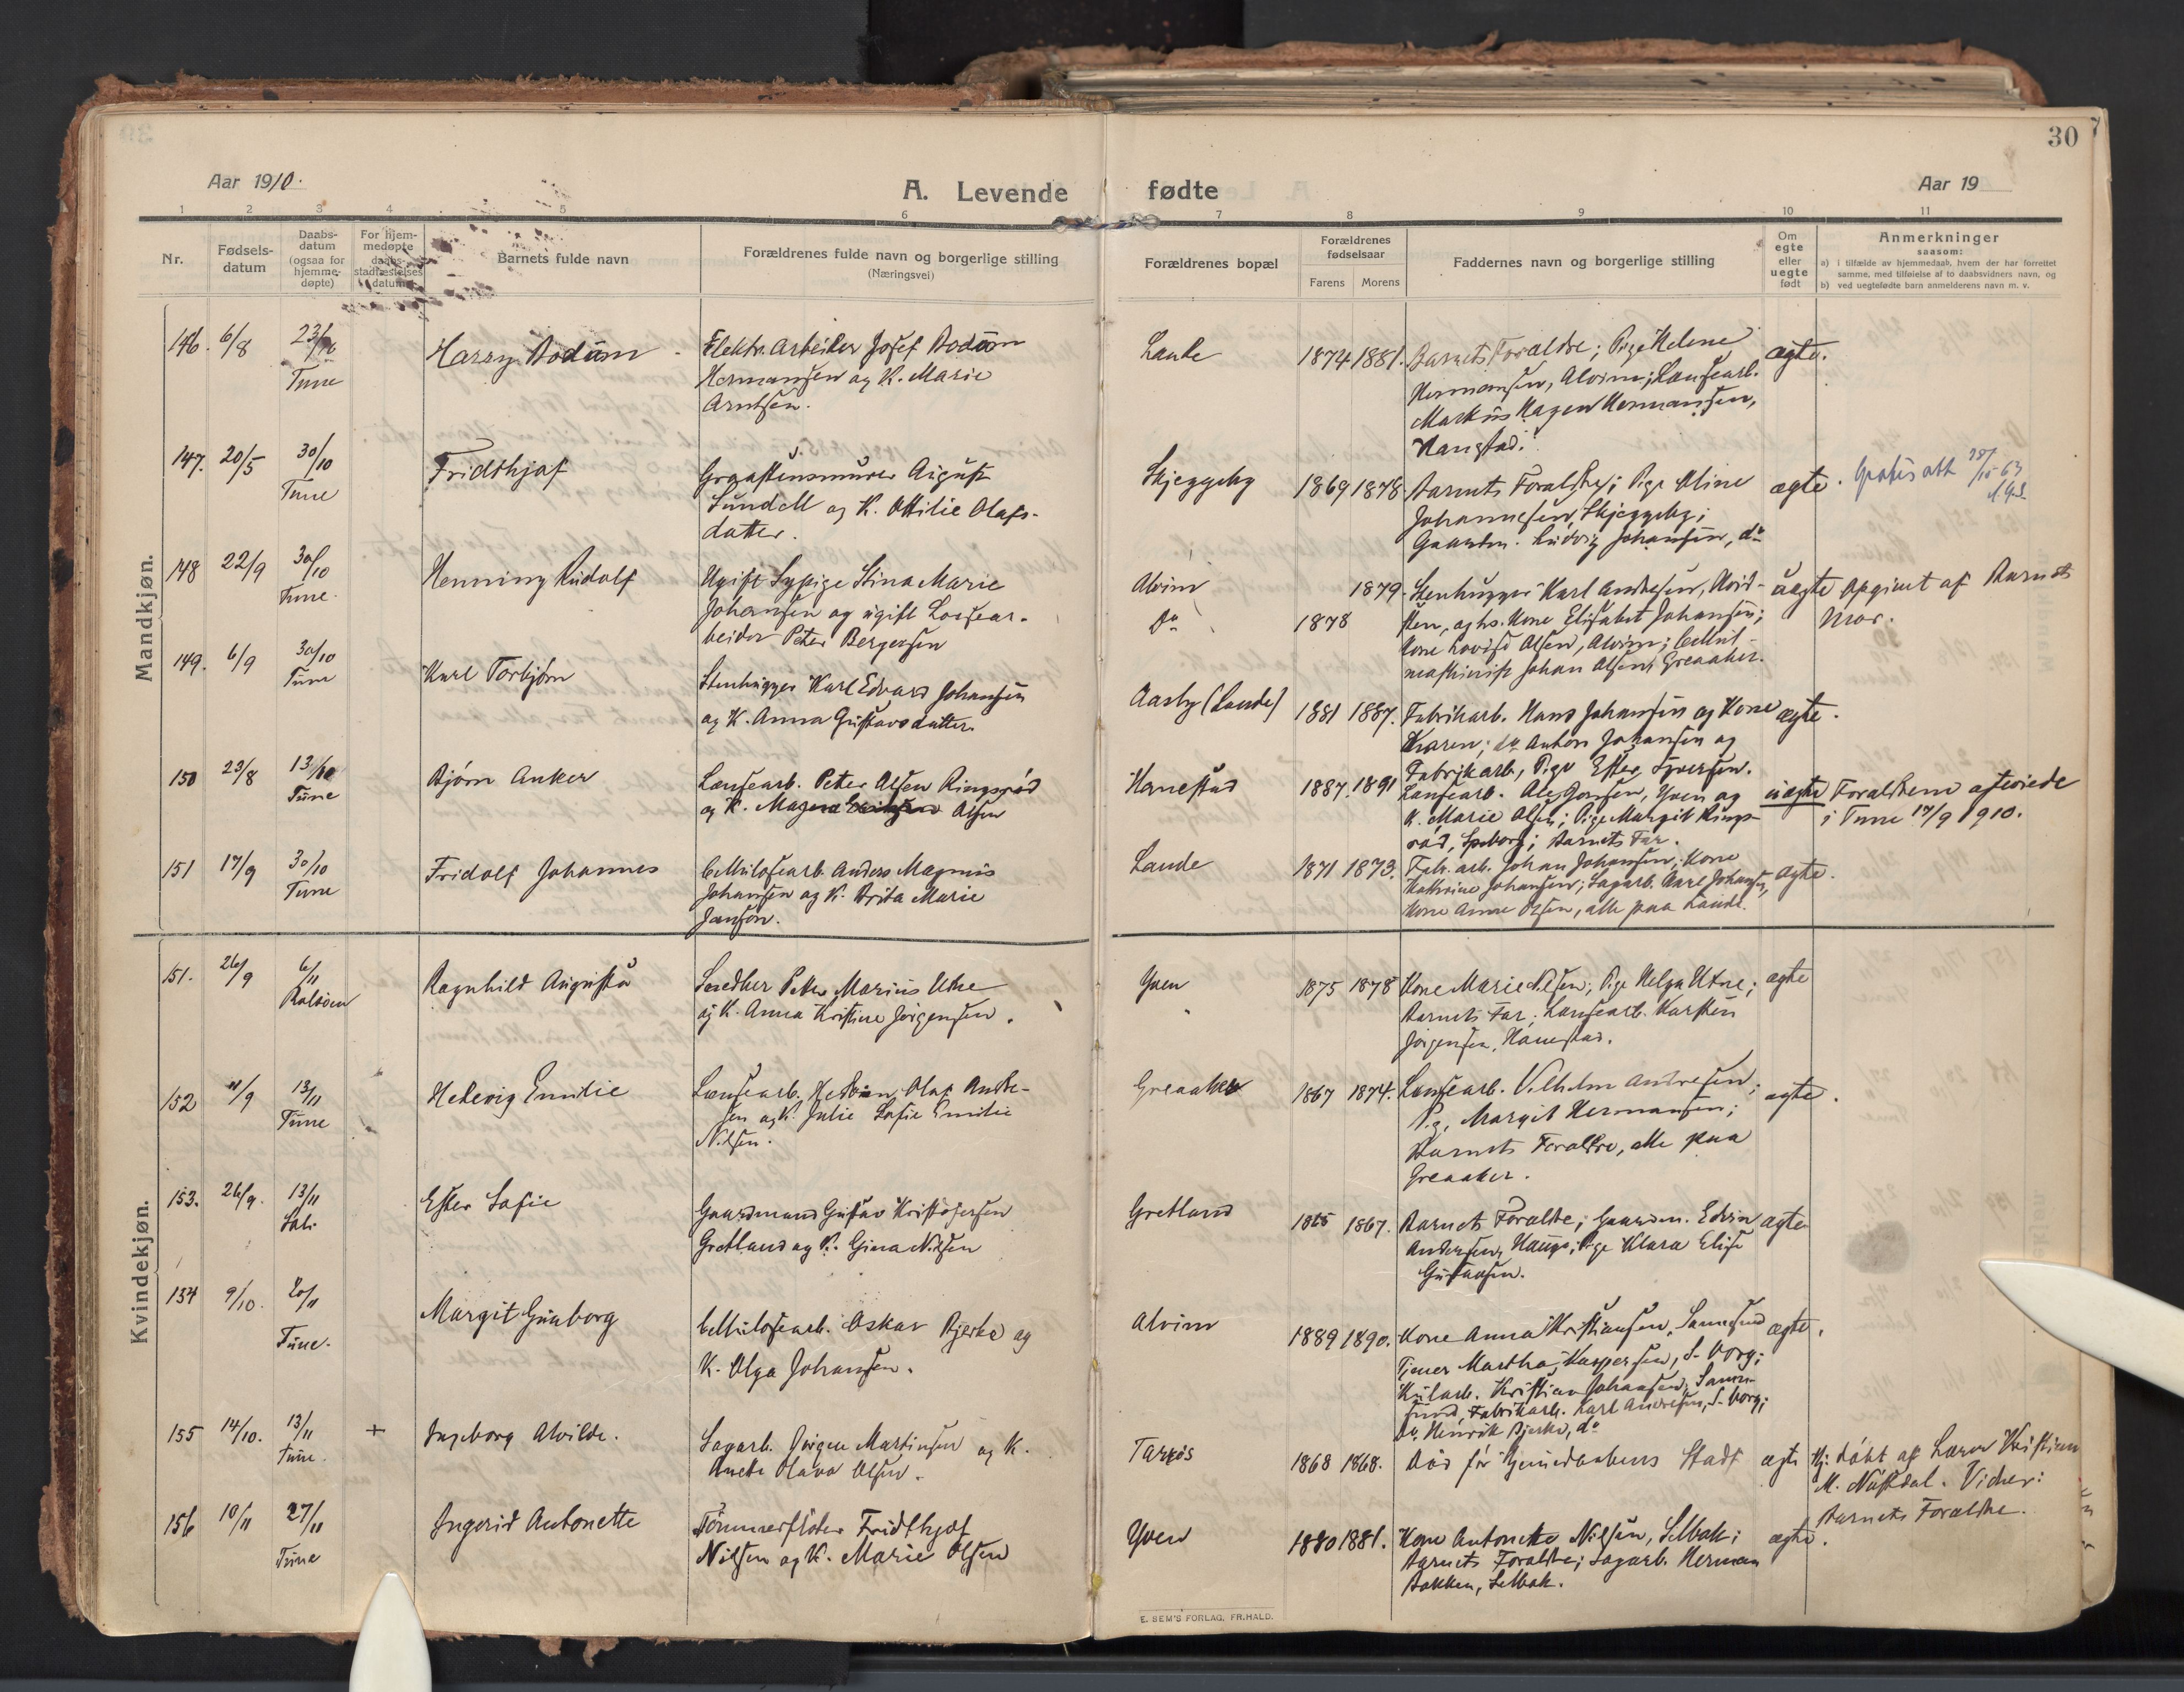 30
Aar 1910.
A. Levende fødte
Aar 19
1 2 3 4 5 6 7 8 9 10 11
Nr.
Fødsels-
datum
Daabs-
datum
(ogsaa for
hjemme-
døpte)
For hjem-
medøpte
daabs-
stadfæstelses
datum
Barnets fulde navn
Forældrenes fulde navn og borgerlige stilling
(Næringsvei)
Forældrenes bopæl
Forældrenes
fødselsaar
Farens Morens
Faddernes navn og borgerlige stilling
Om
egte
eller
uegte
født
Anmerkninger
saasom:
a) i tilfælde av hjemmedaab, hvem der har forrettet
samme, med tilføielse af to daabsvidners navn, og
b) ved uegtefødte barn anmelderens navn m. v.
Mandkjøn.
146. 6/8 23/10 Tune
Harry Bodum
Elektr. Arbeider Josef Bodum
Hermansen og K. Marie
Arntsen.
Lande
1874 1881.
Barnets Forældre; Pige Helene
Hermansen, Alvim; Lænsearb.
Markus Hagen Hermansen,
Hanestad.
ægte.
147. 20/5 30/10 Tune
Fridthjof
Graastensmurer August
Lundell og K. Ottilie Olafs-
datter.
Skjeggeby
1869 1878
Barnets Forældre; Pige Oline
Johannesen, Skjeggeby;
Gaardm. Ludvig Johansen, do
ægte.
148 22/9 30/10 Tune.
Henning Rudolf
Ugift Sypige Stina Marie
Johansen og ugift Lossear-
beider Peter Bergersen
Alvim
Do
1879.
1878
Stenhugger Karl Andresen,
og hs. Kone Elisabet Johansen;
Kone Lovise Olsen, Alvim;
maskinist Johan Olsen, Greaaker.
uægte
Opgivet af Barnets
Mor.
149. 6/9 30/10 Tune
Karl Torbjørn
Stenhugger Karl Edvard Johansen
og K. Anna Gustavsdatter
Aasly (Lande)
1881 1887.
Fabrikarb. Hans Johansen og Kone
Karen; do Anton Johansen og
Fabrikarb., Pige Ester Iversen.
ægte.
150 23/8 13/10 Tune
Bjørn Anker
Lænsearb. Peter Olsen Ringsrød
og K. Magna Olsen
Hanestad
1887. 1891
Lænsearb. Ole Jonsen, Yven og
K. Marie Olsen; Pige Margit Rings-
rød, Speberg; Barnets Far.
uægte
Forældrene ægteviede
i Tune 17/9 1910.
151 17/9 30/10 Tune
Fridolf Johannes
Cellulosearb. Anders Magnus
Johansen og K. Brita Marie
Jansen.
Lande
1871 1873.
Fabr. arb. Johan Johansen, Kone
Kathrine Johansen; Sagarb. Karl Johansen,
Kone Anne Olsen, alle paa Lande.
ægte.
Kvindekjøn.
151. 26/9 6/11 Rolvsøen
Ragnhild Augusta
Snedker Peter Marius Utne
og K. Anna Kristine Jørgensen.
Yven
1875 1878
Kone Marie Nilsen; Pige Helga Utne;
Barnets Far; Lænsearb. Karsten
Jørgensen, Hanestad.
ægte
152 11/9 13/11 Tune
Hedevig Emilie
Lænsearb. Olaf Andre-
sen og K. Julie Sofie Emilie
Nilsen.
Greaaker
1867 1874.
Lænsearb. Vilhelm Andresen;
Pig. Margit Hermansen;
Barnets Forældre, alle paa
Greaaker.
ægte.
153. 26/9. 13/11
Ester Sofie
Gaardmand Gustav Kristofersen
Gretland og K. Gina Nilsen
Gretland
1867.
Barnets Forældre; Gaardm. Edvin
Andersen, Hauge; Pige Klara Elise
Gustavsen.
ægte
154 9/10. 20/11 Tune.
Margit Gunborg
Cellulosearb. Oskar Bjerke og
K. Olga Johansen.
Alvim
1889 1890.
Kone Anna Kristiansen, Sannesund
Tjener Martha Kaspersen, S-borg;
Kularb. Kristian Johansen, Sanne-
sund, Fabrikarb. Karl Andresen, S-borg;
Do Henrik Bjerke, do
ægte.
155 14/10. 13/11 Tune. +
Ingeborg Alvilde.
Sagarb. Jørgen Martinsen og K.
Anette Olava Olsen.
1868 1868.
Død før Hjemmedaabens Stadf
ægte
Hj. døbt af Lærer Kristian
M. Nustdal. Vidner:
Barnets Forældre.
156 10/11 27/11 Tune
Ingerid Antonette
Tømmerfløter Fridthjof
Nilsen og K. Marie Olsen
Yven
1880 1881.
Kone Antonette Nilsen, Selbak;
Barnets Forældre; Sagarb. Herman
Bakken, Selbak.
ægte.
E. SEM'S FORLAG, FR.HALD.